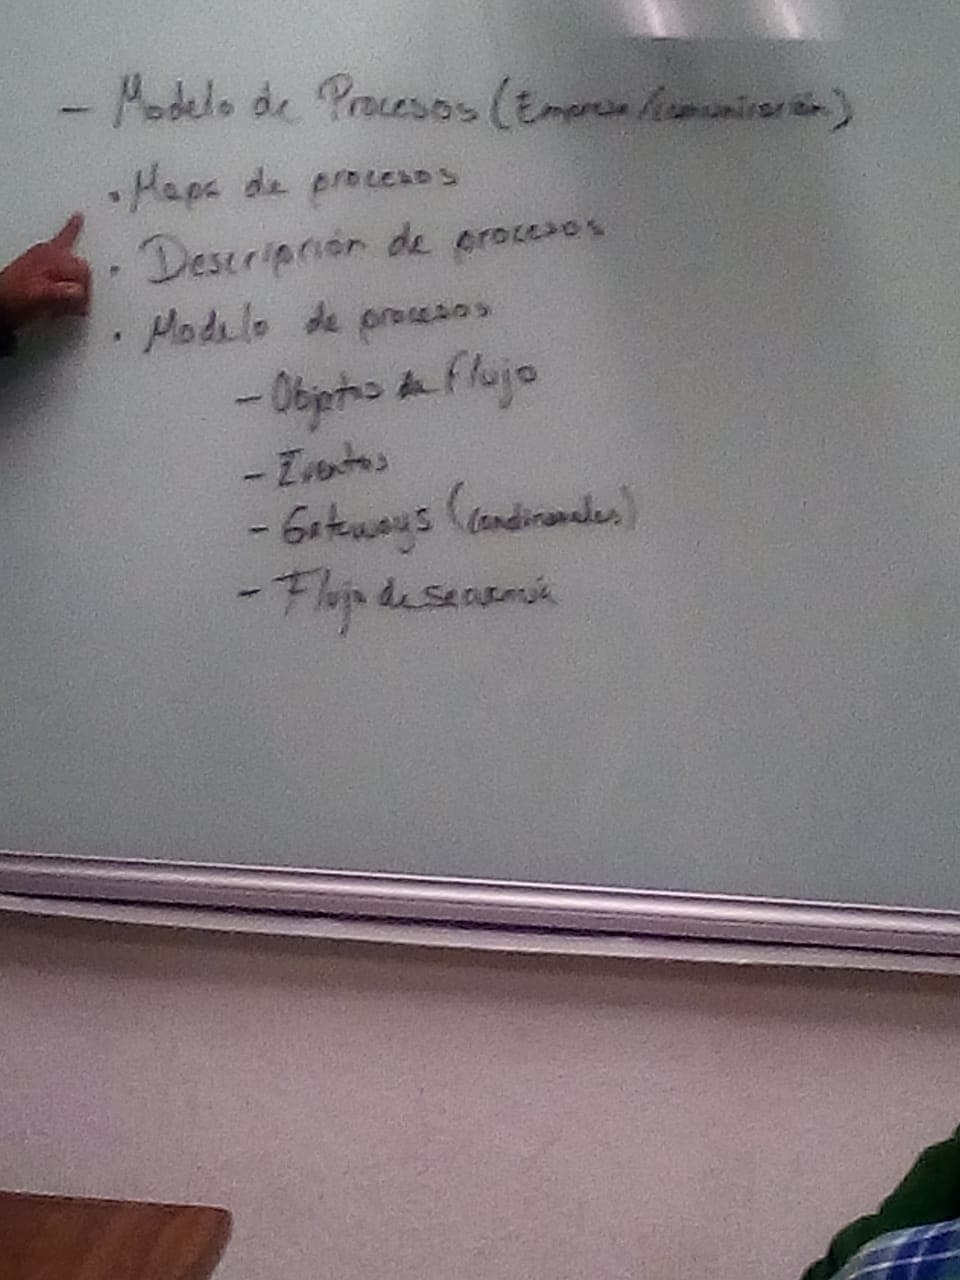 - Modelo de Procesos (Empresa/comunicación)
. Mapa de procesos
. Descripción de procesos
. Modelo de procesos
- Objetos de flujo
- Eventos
- Gateways (condicionales)
- Flujo de secuencia